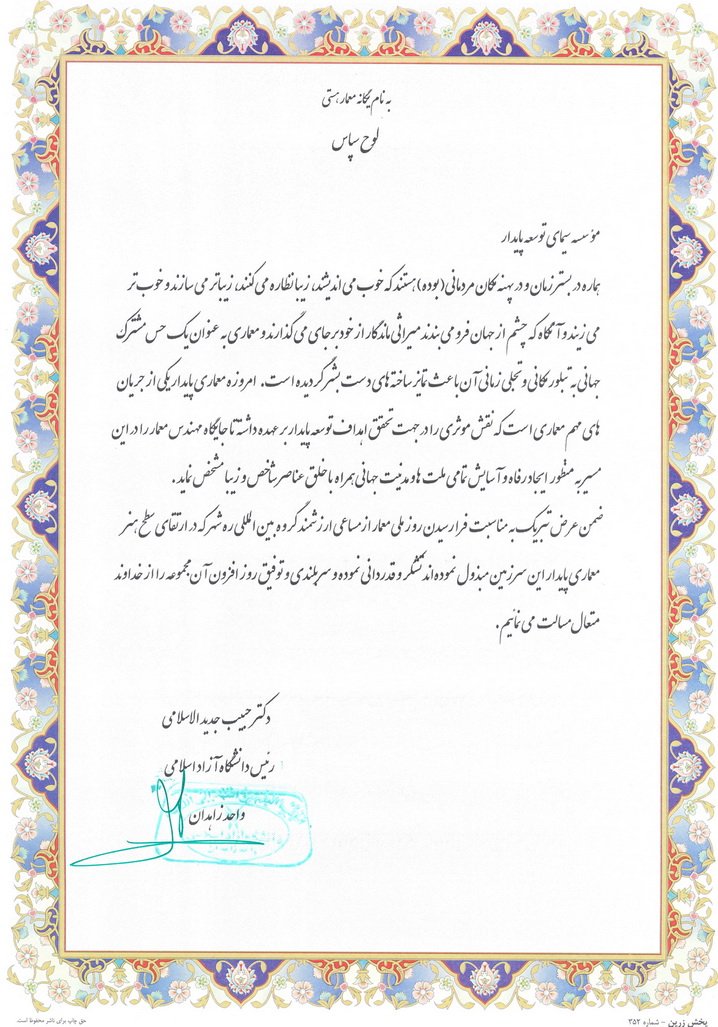 به نام یگانه معمار هستی
لوح سپاس
مؤسسه سیمای توسعه پایدار
هماره در بستر زمان و در پهنه مکان مردمانی (بوده) هستند که خوب می اندیشند، زیبا نظاره می کنند، زیباتر می سازند و خوب تر
می زیند و آنگاه که چشم از جهان فرو می بندند میراثی ماندگار از خود بر جای می گذارند و معماری به عنوان یک حس مشترک
جهانی به تبلور مکانی و تجلی زمانی آن باعث تمایز ساخته های دست بشر گردیده است. امروزه معماری پایدار یکی از جریان
های مهم معماری است که نقش موثری را در جهت تحقق اهداف توسعه پایدار بر عهده داشته تا جایگاه مهندس معمار را در این
مسیر به منظور ایجاد رفاه و آسایش تمامی ملت ها و مدنیت جهانی همراه با خلق عناصر شاخص و زیبا مشخص نماید.
ضمن عرض تبریک به مناسبت فرا رسیدن روز ملی معمار از مساعی ارزشمند گروه بین المللی ره شهر که در ارتقای سطح هنر
معماری پایدار این سرزمین مبذول نموده اند تشکر و قدردانی نموده و سربلندی و توفیق روز افزون آن مجموعه را از خداوند
متعال مسالت می نمائیم.
دکتر حبیب جدید الاسلامی
رئیس دانشگاه آزاد اسلامی
واحد زاهدان
پخش زرین - شماره ۳۵۲
حق چاپ برای ناشر محفوظ است.